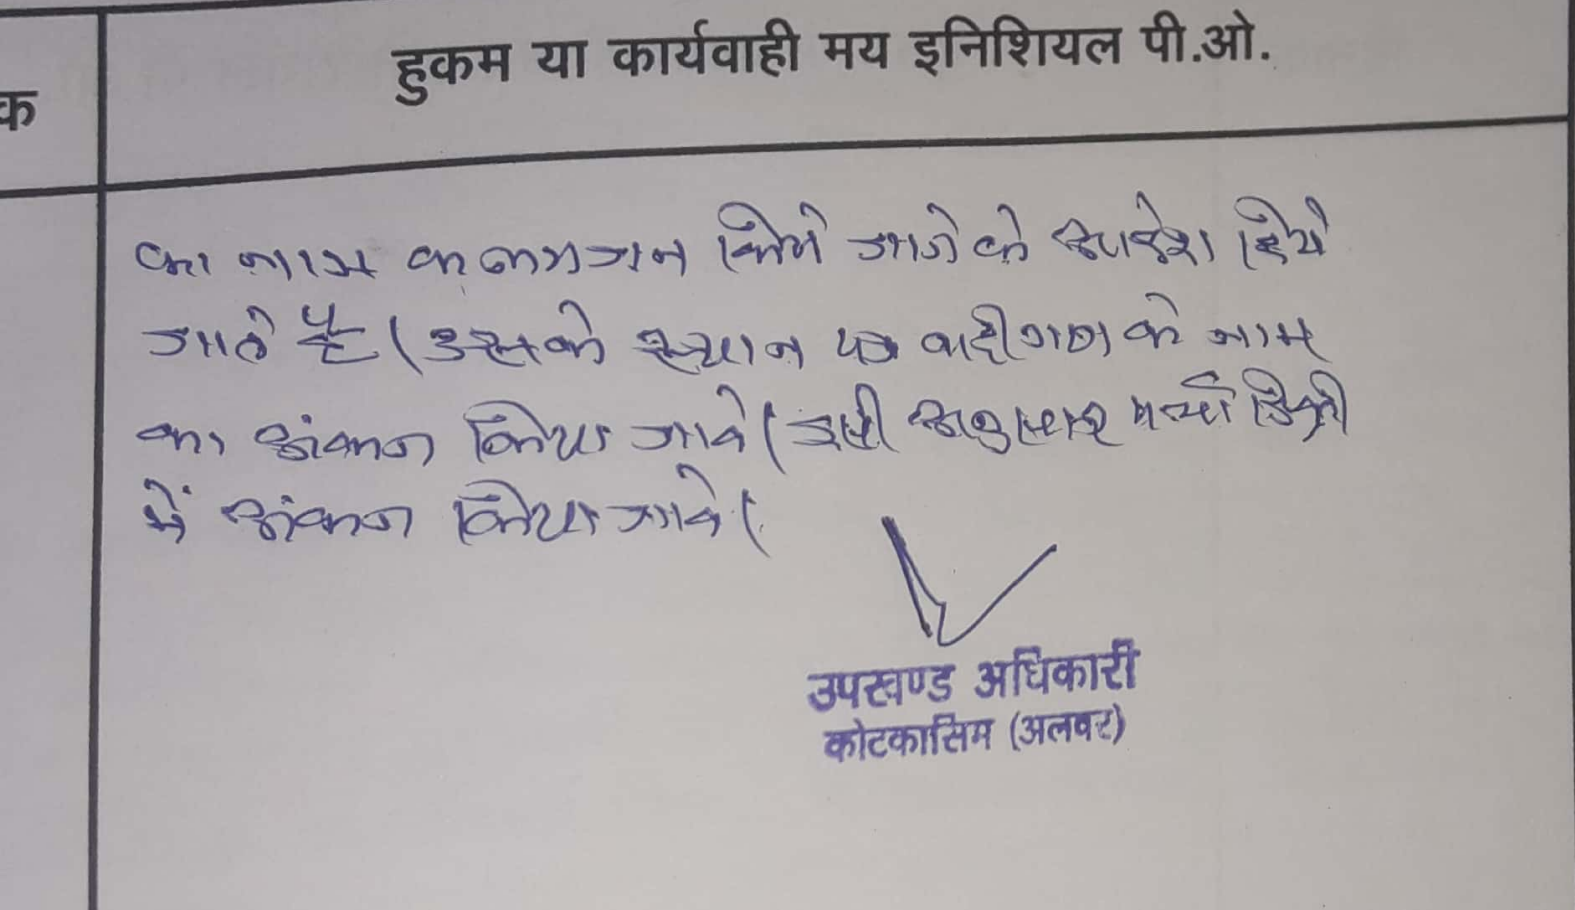 हुकम या कार्यवाही मय इनिशियल पी.ओ.
क
का नाम कलमजन किये जाने के आदेश दिये
जाते है। उसके स्थान पर वादीगण के नाम
का अंकन किया जावे। इसी अनुसार पर्चा डिक्री
में अंकन किया जावे।
उपखण्ड अधिकारी
कोटकासिम (अलवर)